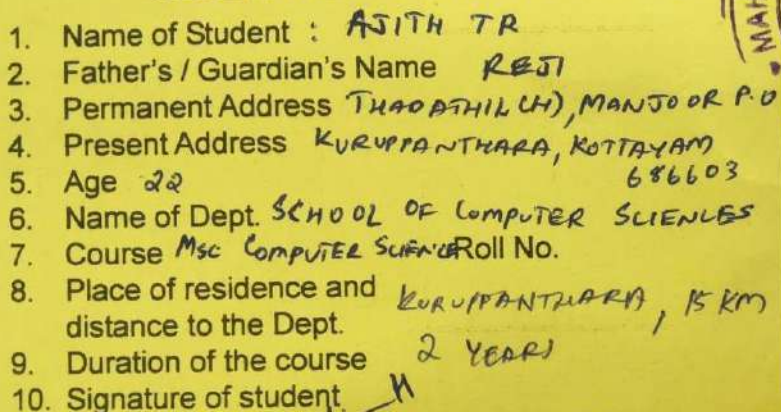 1. Name of Student : AJITH TR
2. Father's / Guardian's Name REJI
3. Permanent Address THADATHIL (H), MANJOOR P.O
4. Present Address KURUPPANTHARA, KOTTAYAM
686603
5. Age 22
6. Name of Dept. SCHOOL OF COMPUTER SCIENCES
7. Course Msc COMPUTER SCIENCE Roll No.
8. Place of residence and
distance to the Dept. KURUPPANTHARA, 15 KM
9. Duration of the course 2 YEARS
10. Signature of student
MAH